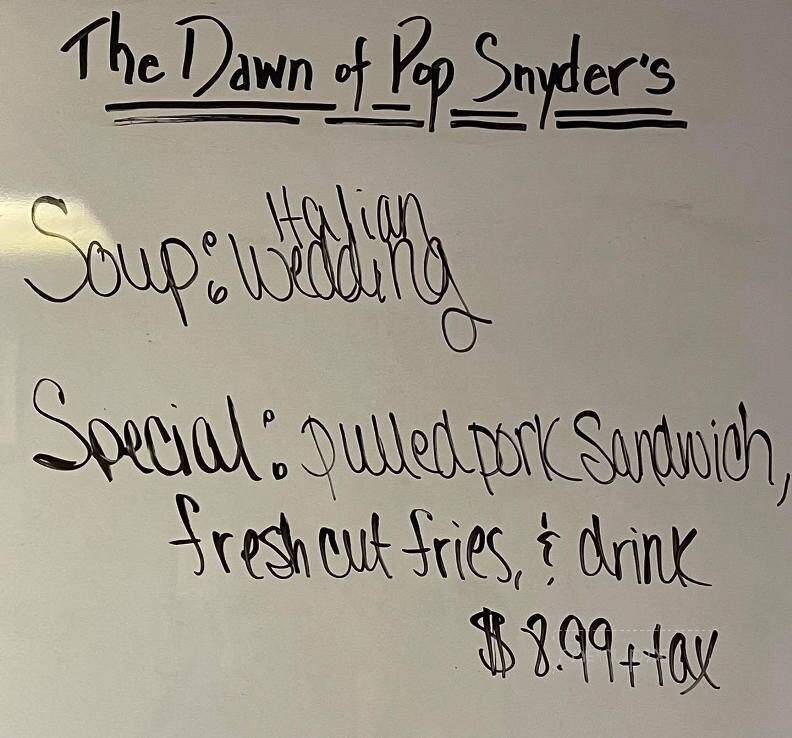 The Dawn of Pop Snyder's
Soup: Italian
wedding
Special: pulled pork Sandwich,
fresh cut fries, & drink
$8.99 + tax